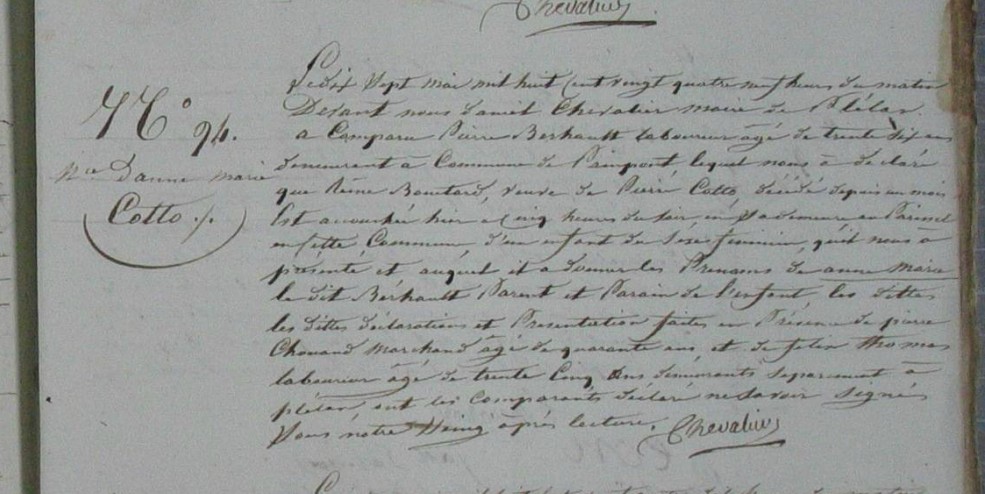 Chevalier
Le dix Sept mai mil huit Cent vingt quatre neuf heures du matin
Devant nous daniel Chevalier maire de Plélan
N° 94.
a Comparu Pierre Berhault laboureur âgé de trente six ans
demeurant a Commune de Paimpont lequel nous à déclaré
Nce Danne marie
que Reine Boutard, veuve de Pierre Cotto, décédé depuis un mois
Cotto ./.
Est accouchée hier a Cinq heures du soir, en sa demeure au
en cette Commune d'un enfant du Sexe feminin, qu'il nous à
présenté et auquel il a donner les Prenoms de anne Marie
le dit Berhault Parent et Parain de l'enfant, les dittes
les dittes déclarations et Presentation faites en Présence de pierre
Chouand Marchand âgé de quarante ans et de felix thomas
laboureur âgé de trente Cinq Ans demeurants Separement à
plélan, ont les comparants déclaré ne Savoir Signés
Sous nôtre Seing après lecture. Chevalier